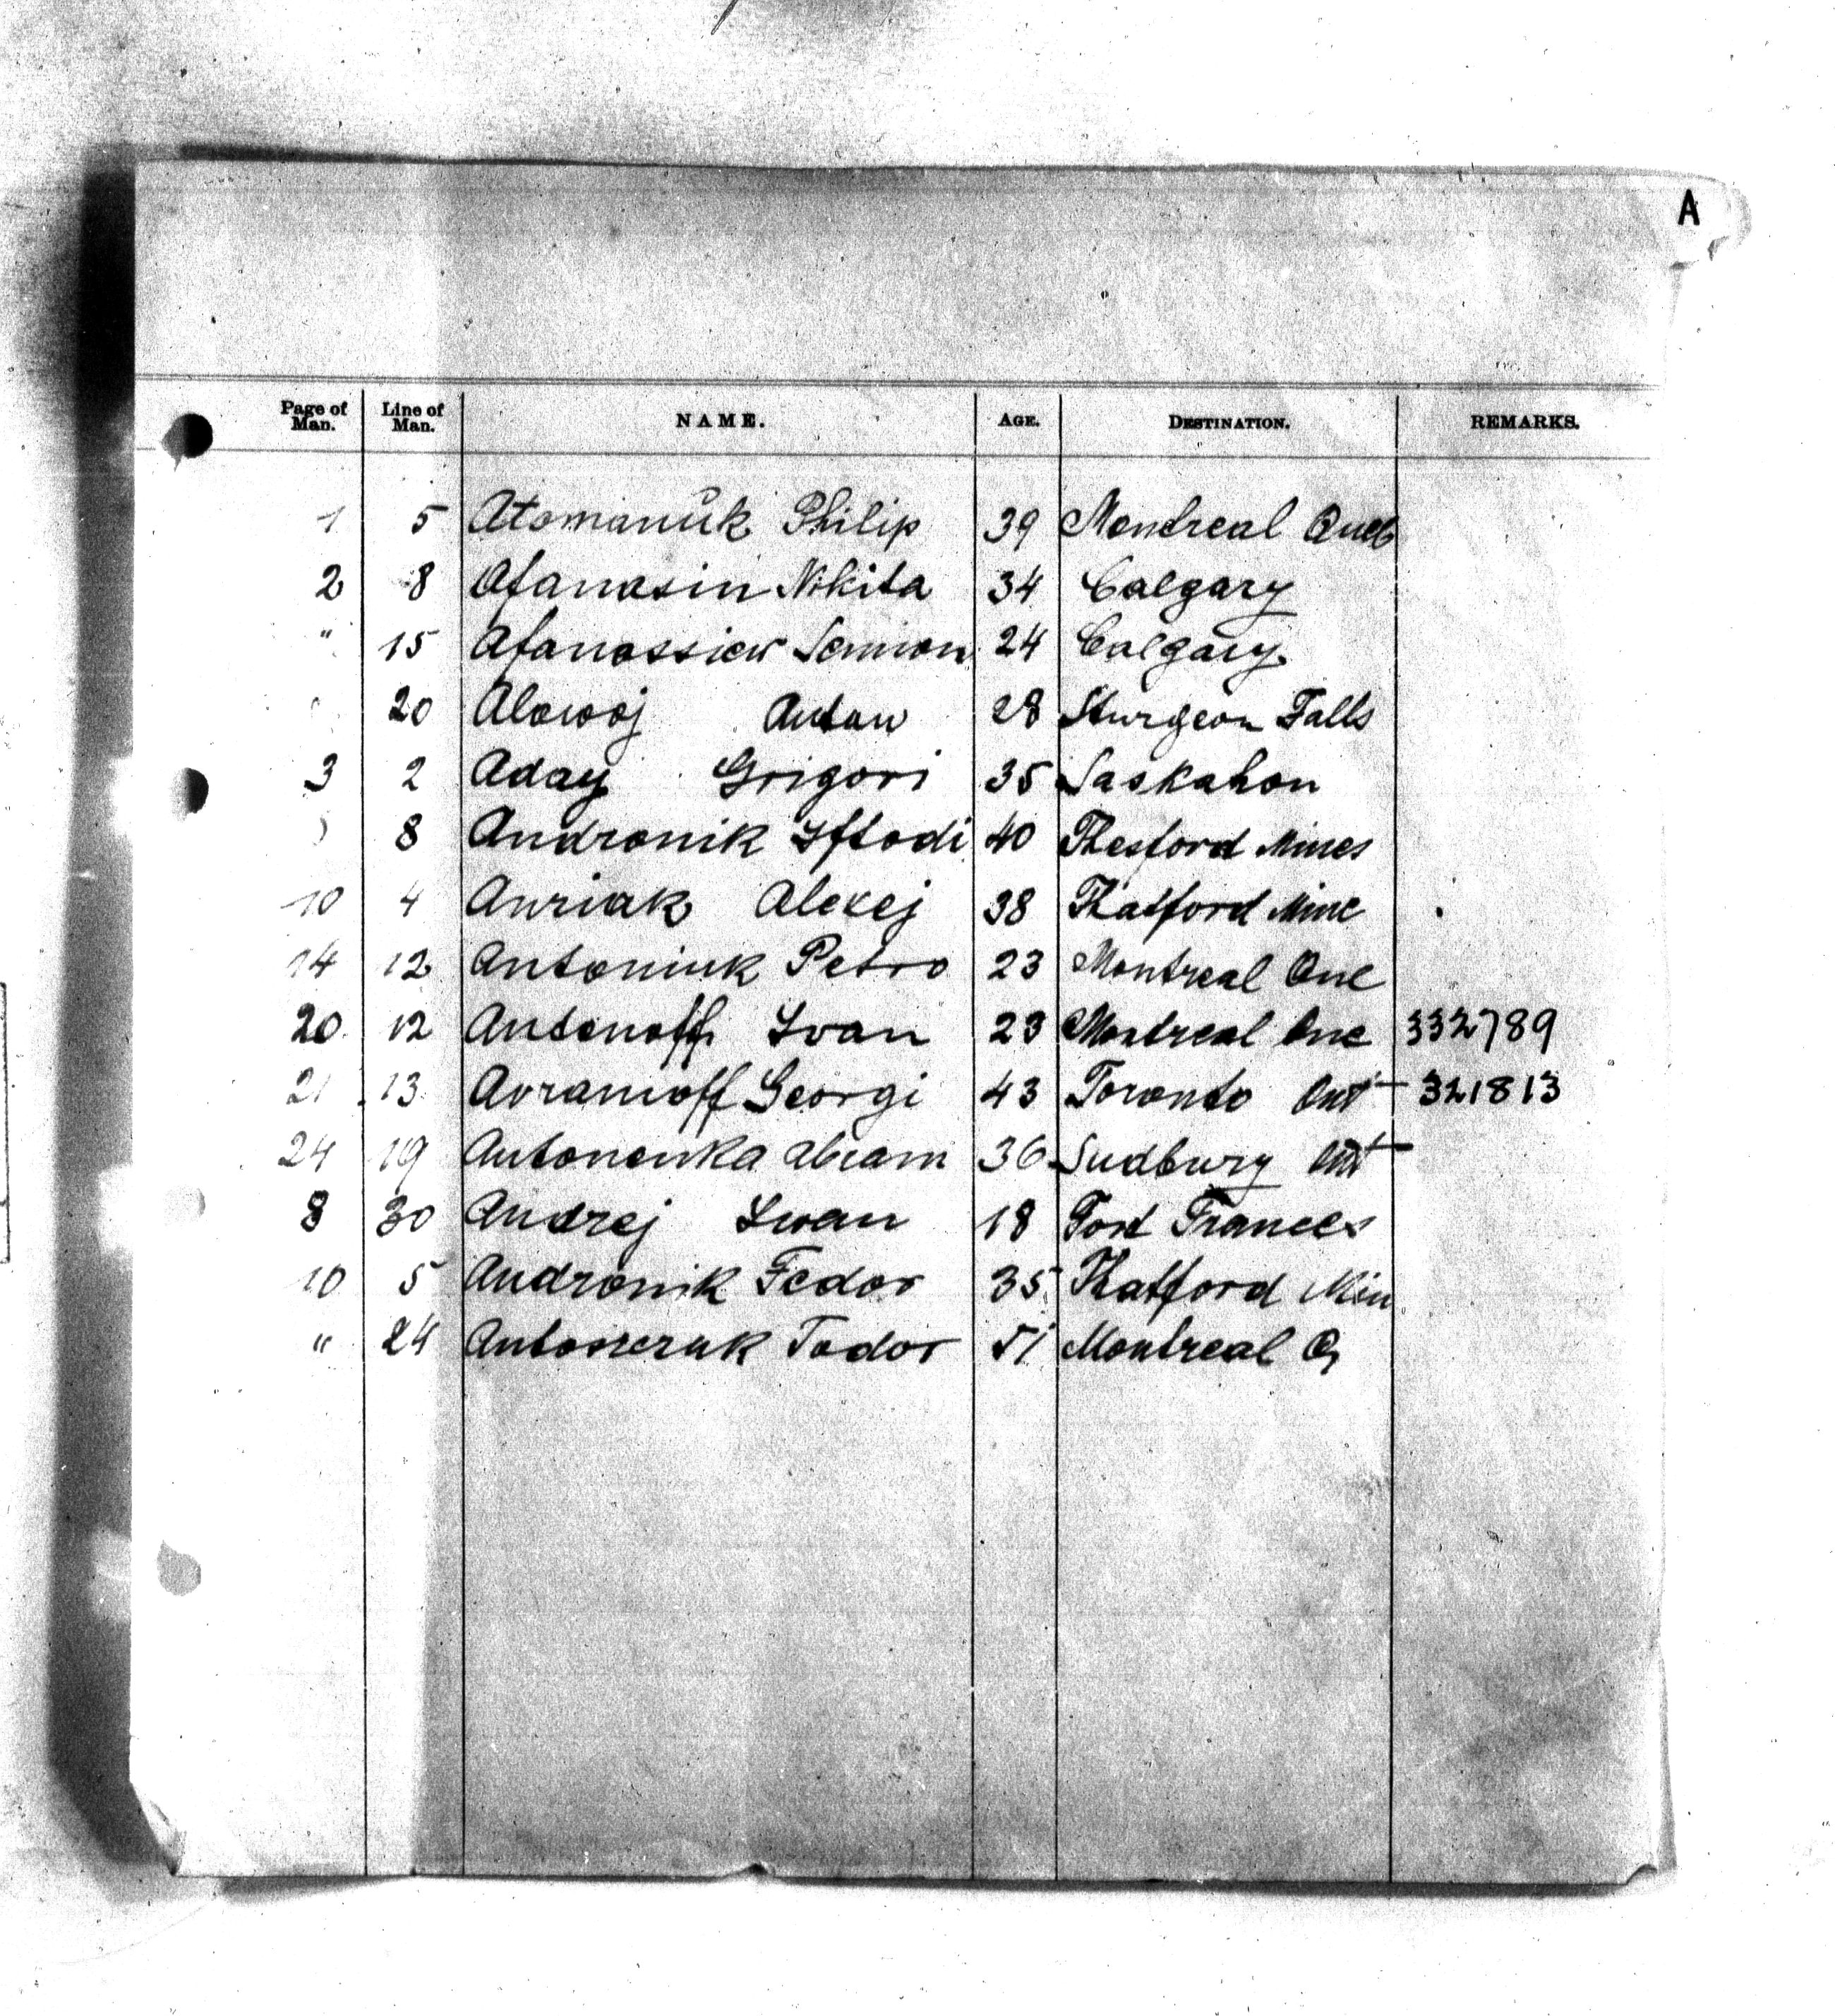 A
Page of Man. Line of Man. NAME. AGE. DESTINATION. REMARKS.
1 5 Atomaniŭk Philip 39 Montreal Queb
2 8 Afanasin Nikita 34 Calgary
" 15 Afanassiew Semion 24 Calgary
20 Alowoj Anton 28 Sturgeon Falls
3 2 Aday Grigori 35 Saskahon
8 Andronik Iftodi 40 Thesford Mines
10 4 Auriak Alexej 38 Thatford Mine
14 12 Antoniuk Petro 23 Montreal Que
20 12 Antonoff Ivan 23 Montreal Que 332789
21 13 Avramoff Georgi 43 Toronto Ont 321813
24 19 Antonenka Abram 36 Sudbury Ont
8 30 Andrej Iwan 18 Fort Frances
10 5 Andronik Fedor 35 Thatford Min
" 24 Antoszczuk Todor 51 Montreal Q